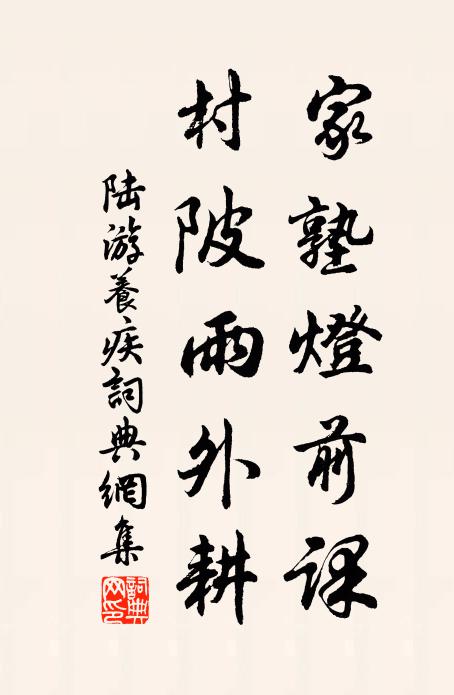 家塾燈前課
村陂雨外耕
陆游養疾詞典網集
詞典網印